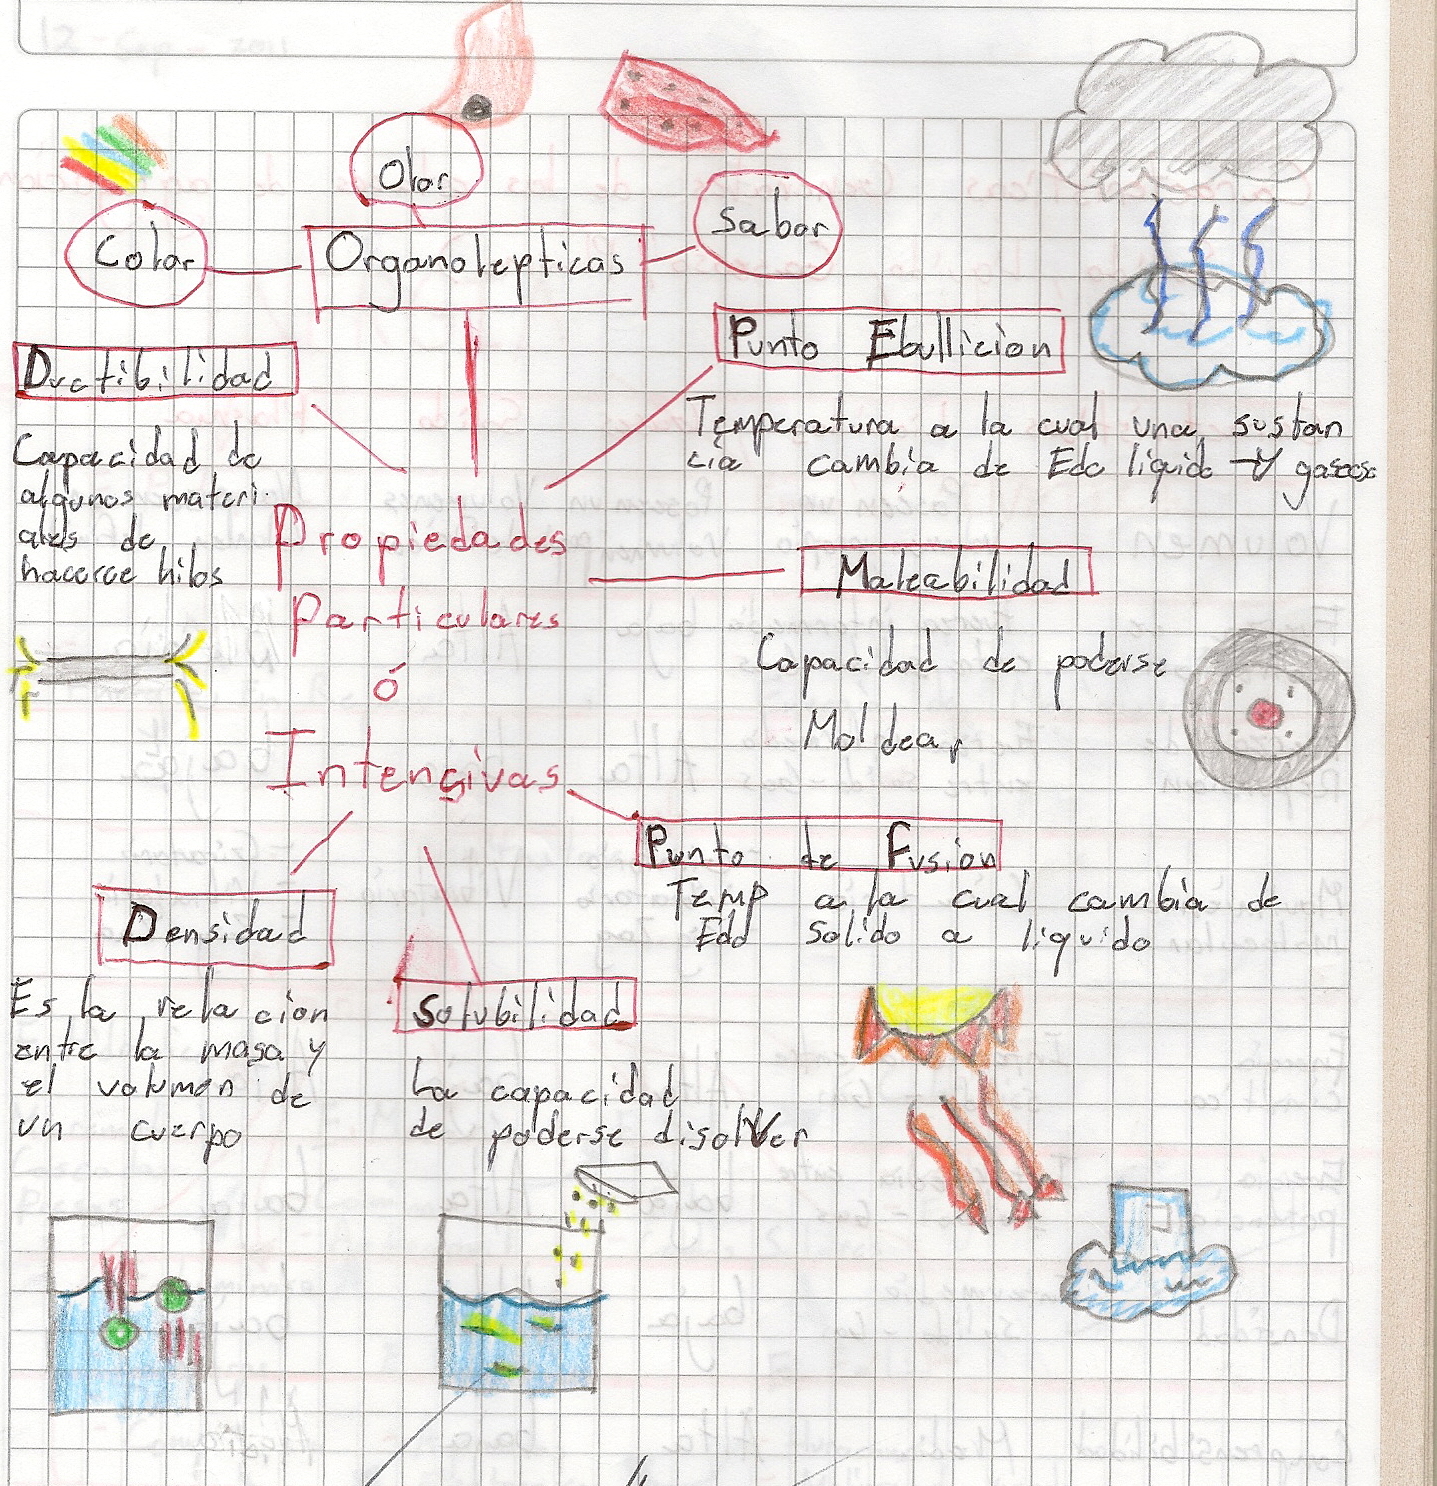 Olor
Color
Organolepticas
Sabor
Punto Ebullicion
Temperatura a la cual una sustan
cia cambia de Edo liquido → gaseoso
Ductibilidad
Capacidad de
algunos materi
ales de
hacerce hilos
Propiedades
Particulares
ó
Intensivas
Maleabilidad
Capacidad de poderse
Moldear
Punto de Fusion
Temp a la cual cambia de
Edo Solido a liquido
Densidad
Es la relacion
entre la masa y
el volumen de
un cuerpo
Solubilidad
La capacidad
de poderse disolver